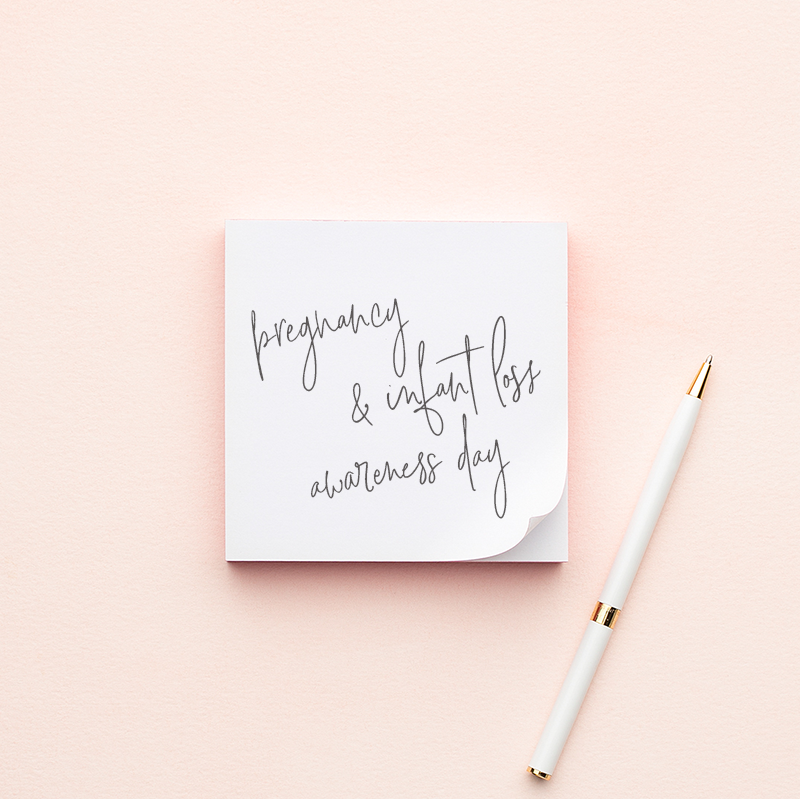 pregnancy
& infant loss
awareness day